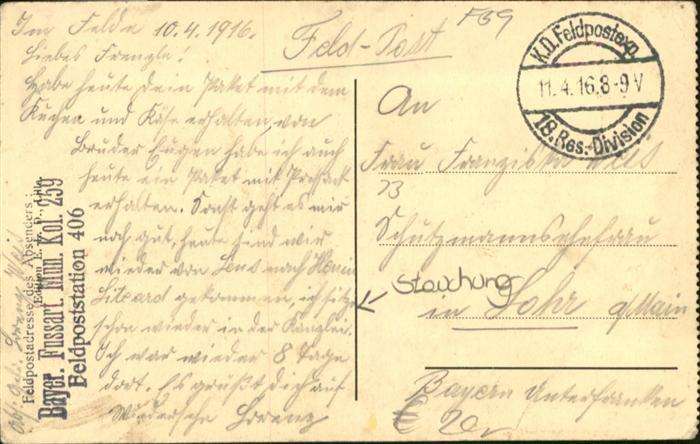 Im Felde 10.4.1916.
Liebes Franzle!
Habe heute dein Paket mit dem
Kuchen und Käse erhalten, von
Bruder Eugen habe ich auch
heute ein Paket mit
erhalten. Sonst geht es mir
noch gut, heute sind wir
wieder von Lens nach Henin
Lietard gekommen, ich sitze
schon wieder in der Kanzlei.
Ich war wieder 8 Tage
dort. Es grüßt dich auf
Wiedersehn Lorenz
Feld-Post
F39
K.D. Feldpostexp.
11.4.16.8-9V
18. Res.-Division
An
Frau Franziska
Schutzmannsehefrau
in Lohr a/Main
Bayern Unterfranken
Stauchung
€ 20,-
Feldpostadresse des Absenders:
Bayer. Fussart. Mun. Kol. 259
Feldpoststation 406